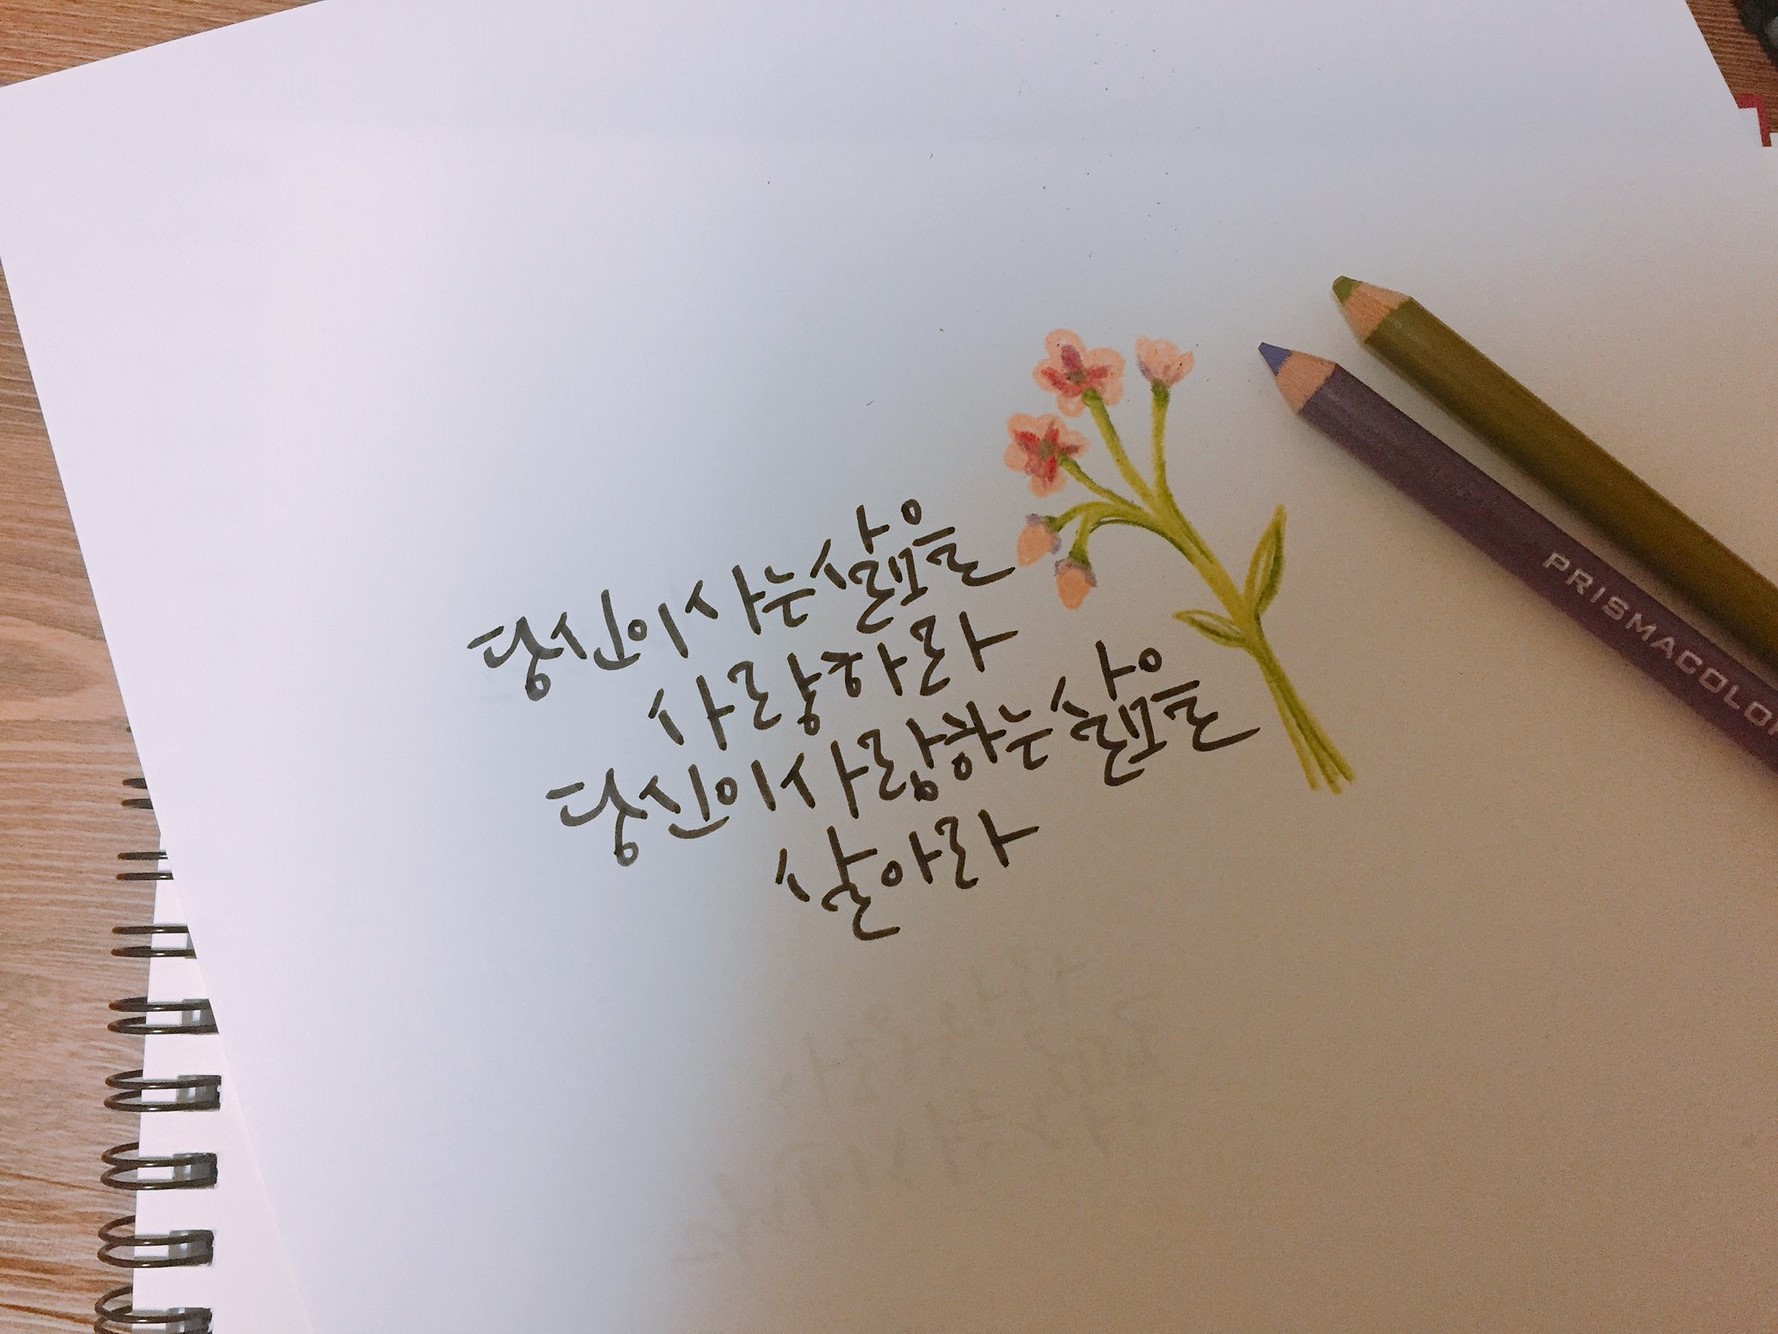 당신이 사는 삶을
사랑하라
당신이 사랑하는 삶을
살아라
PRISMACOLO